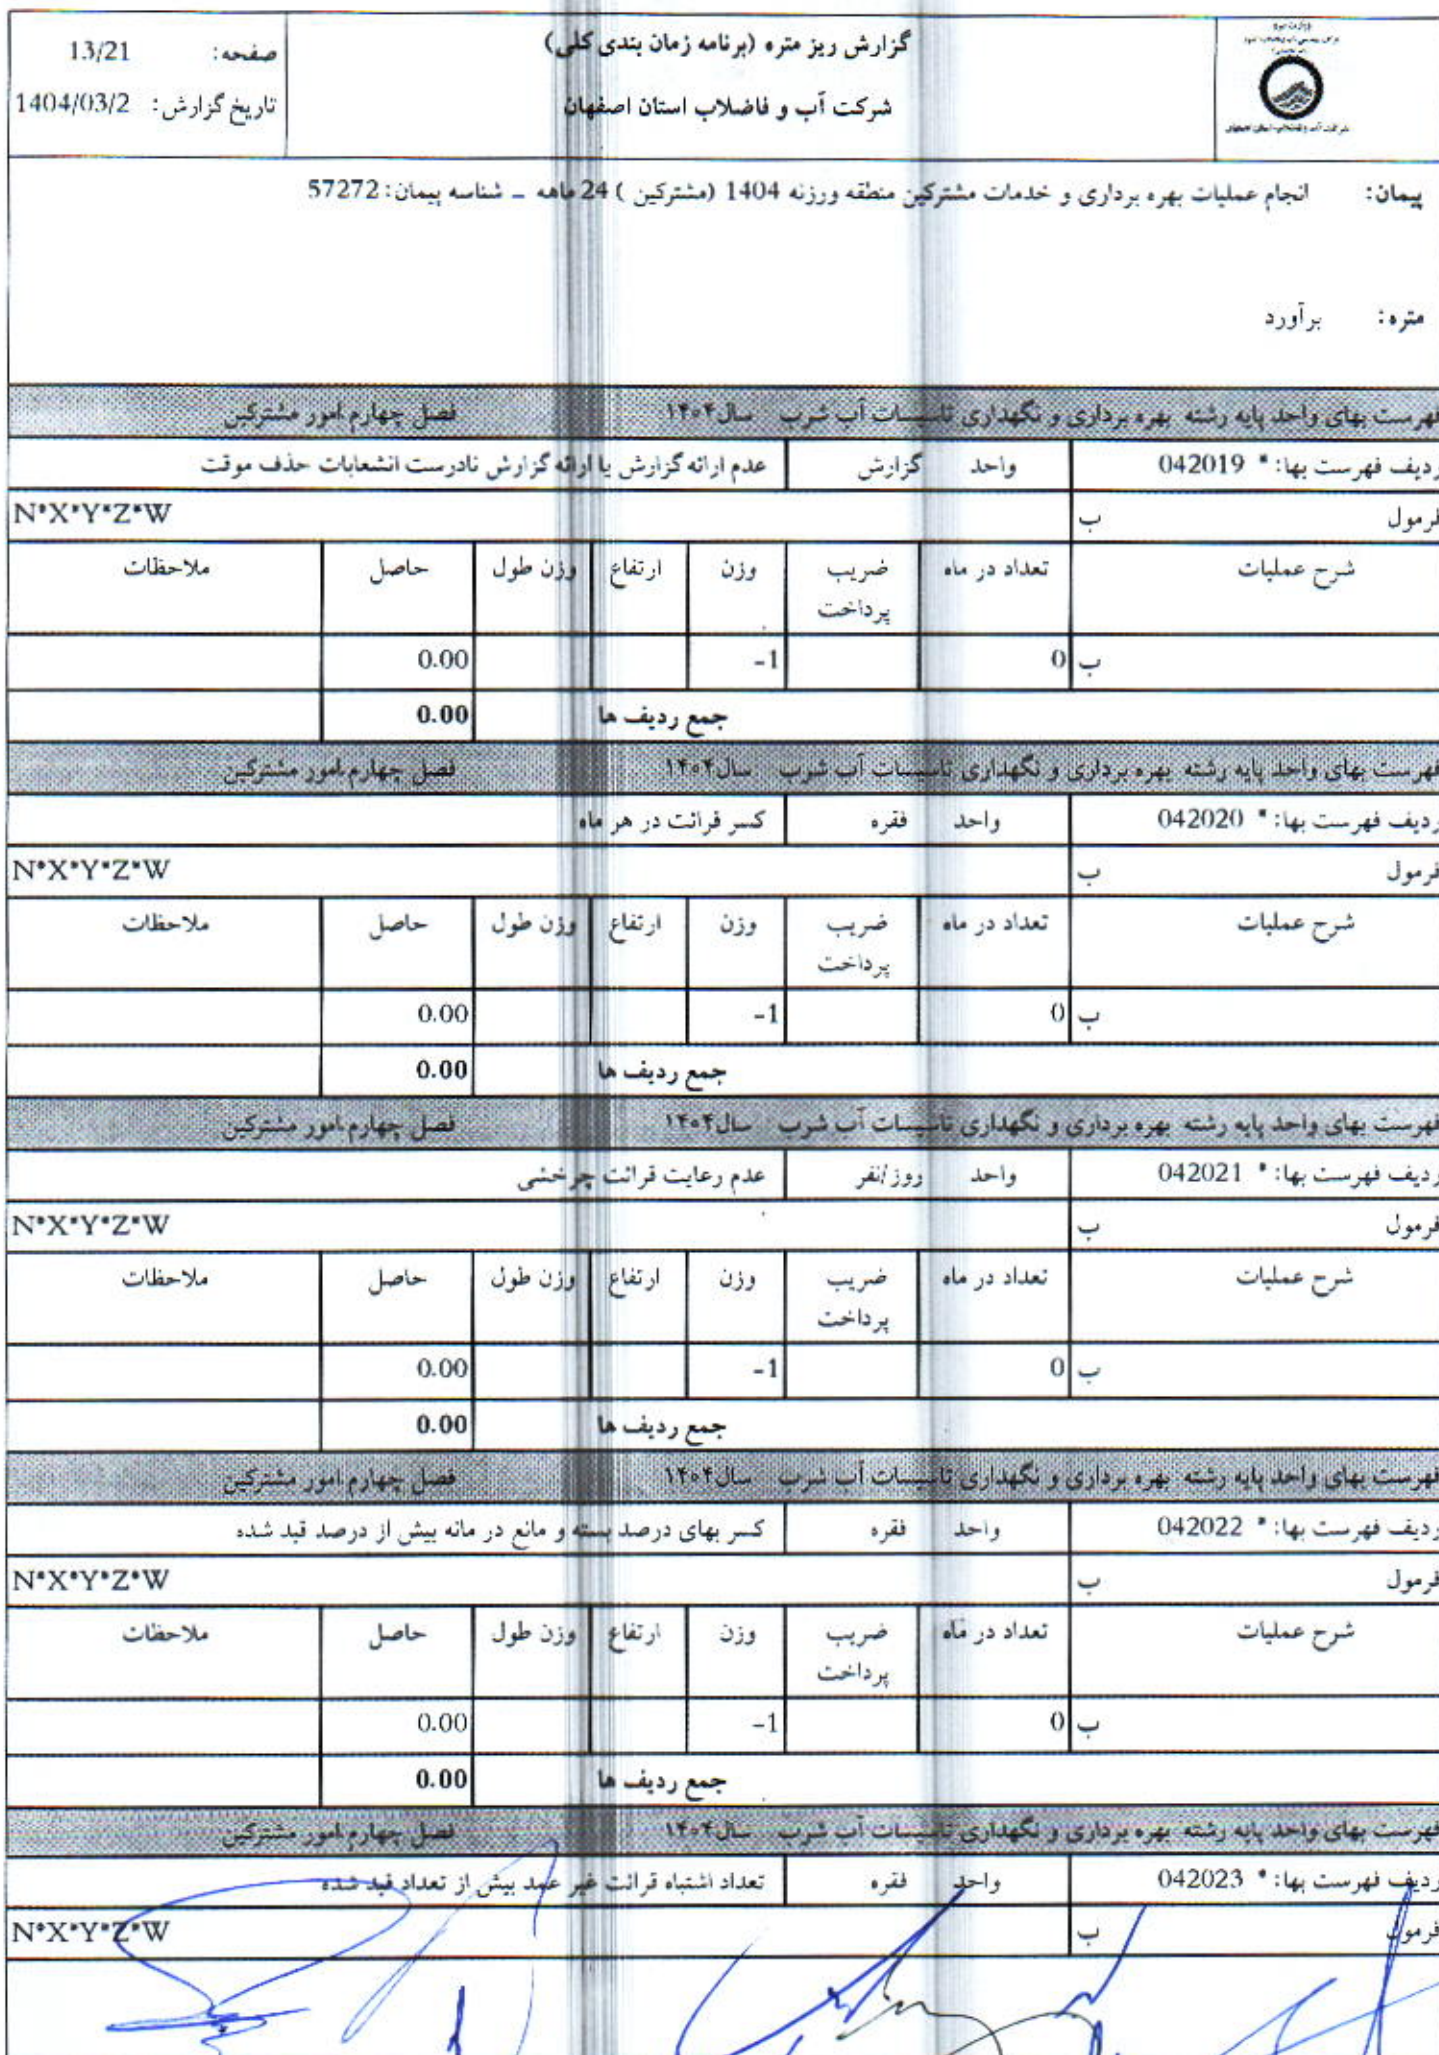 گزارش ریز متره (برنامه زمان بندی کلی)
شرکت آب و فاضلاب استان اصفهان
صفحه: 13/21
تاریخ گزارش: 1404/03/2
پیمان: انجام عملیات بهره برداری و خدمات مشترکین منطقه ورزنه 1404 (مشترکین ) 24 ماهه - شناسه پیمان: 57272
متره: برآورد
فهرست بهای واحد پایه رشته بهره برداری و نگهداری تاسیسات آب شرب سال۱۴۰۴ فصل چهارم.امور مشترکین
ردیف فهرست بها: * 042019 واحد گزارش عدم ارائه گزارش یا ارائه گزارش نادرست انشعابات حذف موقت
فرمول ب N*X*Y*Z*W
شرح عملیات تعداد در ماه ضریب پرداخت وزن ارتفاع وزن طول حاصل ملاحظات
ب 0 -1 0.00
جمع ردیف ها 0.00
فهرست بهای واحد پایه رشته بهره برداری و نگهداری تاسیسات آب شرب سال۱۴۰۴ فصل چهارم.امور مشترکین
ردیف فهرست بها: * 042020 واحد فقره کسر قرائت در هر ماه
فرمول ب N*X*Y*Z*W
شرح عملیات تعداد در ماه ضریب پرداخت وزن ارتفاع وزن طول حاصل ملاحظات
ب 0 -1 0.00
جمع ردیف ها 0.00
فهرست بهای واحد پایه رشته بهره برداری و نگهداری تاسیسات آب شرب سال۱۴۰۴ فصل چهارم.امور مشترکین
ردیف فهرست بها: * 042021 واحد روز/نفر عدم رعایت قرائت چرخشی
فرمول ب N*X*Y*Z*W
شرح عملیات تعداد در ماه ضریب پرداخت وزن ارتفاع وزن طول حاصل ملاحظات
ب 0 -1 0.00
جمع ردیف ها 0.00
فهرست بهای واحد پایه رشته بهره برداری و نگهداری تاسیسات آب شرب سال۱۴۰۴ فصل چهارم.امور مشترکین
ردیف فهرست بها: * 042022 واحد فقره کسر بهای درصد بسته و مانع در مانه بیش از درصد قید شده
فرمول ب N*X*Y*Z*W
شرح عملیات تعداد در ماه ضریب پرداخت وزن ارتفاع وزن طول حاصل ملاحظات
ب 0 -1 0.00
جمع ردیف ها 0.00
فهرست بهای واحد پایه رشته بهره برداری و نگهداری تاسیسات آب شرب سال۱۴۰۴ فصل چهارم.امور مشترکین
ردیف فهرست بها: * 042023 واحد فقره تعداد اشتباه قرائت غیر عمد بیش از تعداد قید شده
فرمول ب N*X*Y*Z*W